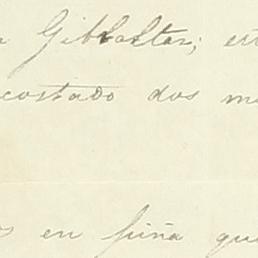 Gibraltar; es
costado dos me
en piña que